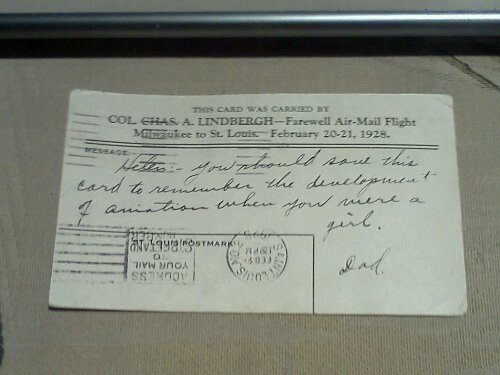 THIS CARD WAS CARRIED BY
COL. CHAS. A. LINDBERGH—Farewell Air-Mail Flight
Milwaukee to St. Louis. February 20-21, 1928.
MESSAGE
Helen:- You should save this
card to remember the development
of aviation when you were a
girl.
Dad.
ST. LOUIS POSTMARK
ADDRESS
YOUR MAIL
TO
STREET AND
NUMBER
SAINT LOUIS, MO.
FEB 21
12 PM